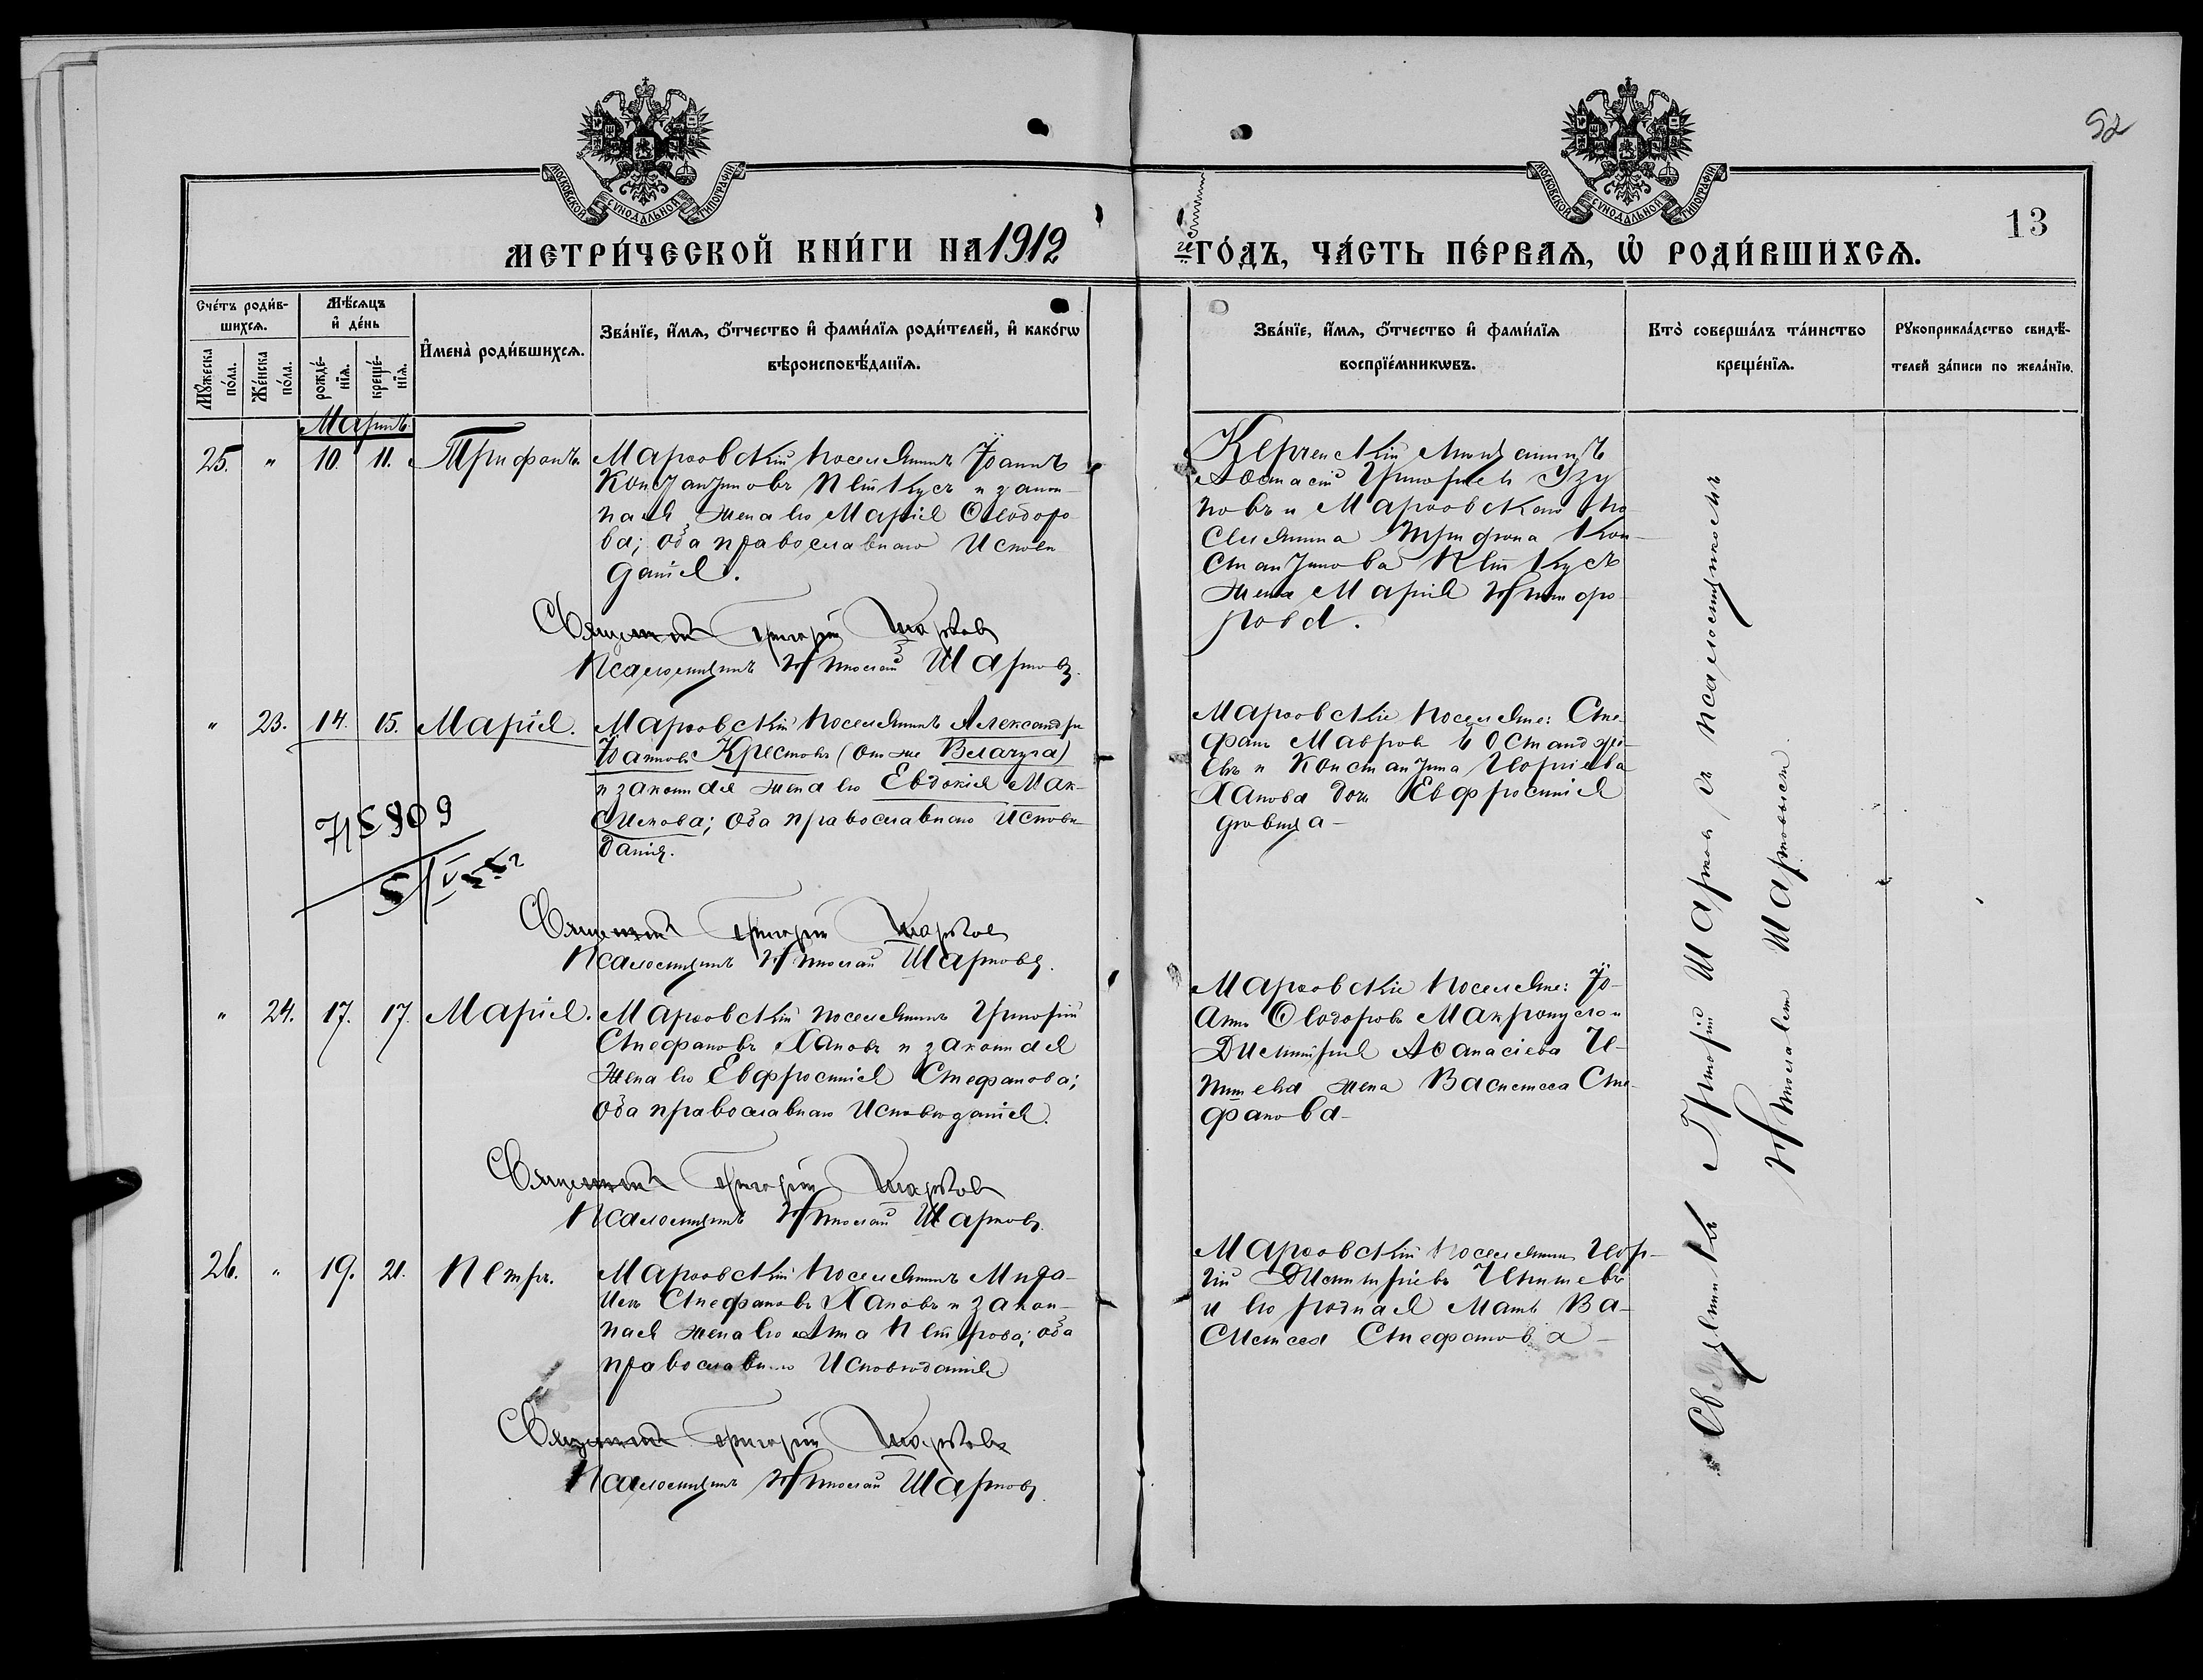 52
13
МОСКОВСКОЙ СУНОДАЛЬНОЙ ТИПОГРАФІИ
МОСКОВСКОЙ СУНОДАЛЬНОЙ ТИПОГРАФІИ
МЕТРИ́ЧЕСКОЙ КНИ́ГИ НА 1912
й ГО́ДЪ, ЧА́СТЬ ПЕ́РВАѦ, Ѡ҆ РОДИ́ВШИХСѦ.
Сче́тъ роди́в-
шихсѧ.
Мꙋжеска по́ла.
Же́нска по́ла.
Мѣ́сѧцъ
и҆ де́нь
рожде́-
нїѧ.
креще́-
нїѧ.
И҆мена̀ роди́вшихсѧ.
Зва́нїе, и҆́мѧ, о҆́тчество и҆ фами́лїѧ роди́телей, и҆ како́гѡ
вѣроисповѣ́данїѧ.
Зва́нїе, и҆́мѧ, о҆́тчество и҆ фами́лїѧ
воспрїе́мникѡвъ.
Кто̀ соверша́лъ та́инство
креще́нїѧ.
Рꙋкоприкла́дство свидѣ́-
телей за́писи по жела́нїю.
Мартъ
25. " 10. 11. Трифонъ.
Марховскій поселянинъ Іоаннъ
Константиновъ Пейткусъ и закон-
ная жена его Марія Ѳеодоро-
ва; оба православнаго исповѣ
данія.
Священникъ Григорій Шарков
Псаломщикъ Николай Шартовъ.
Керченскій мѣщанинъ
Аѳанасій Григорьев Узу
новъ и Марховскаго по-
селянина Трифона Кон-
стантинова Пейткусъ
жена Марія Никифо-
рова.
" 23. 14. 15. Марія.
Марховскій поселянинъ Александръ
Іоанновъ Крестовъ (онъ же Влачуга)
и законная жена его Евдокія Мак-
симова; оба православнаго исповѣ
данія.
Священникъ Григорій Шарков
Псаломщикъ Николай Шартовъ.
Марховскіе поселяне: Сте-
фанъ Мавровъ
евъ и Константина Георгіева
Ханова дочь Евфросинія
дѣвица
" 24. 17. 17. Марія.
Марховскій поселянинъ Григорій
Стефановъ Хановъ и законная
жена его Евфросинія Стефанова;
оба православнаго исповѣданія.
Священникъ Григорій Шарков
Псаломщикъ Николай Шартовъ.
Марховскіе поселяне: Іо-
аннъ Ѳеодоровъ Макропуло и
Димитрія Аѳанасіева
жена Василисса Сте-
фанова
26. " 19. 21. Петръ.
Марховскій поселянинъ Миха-
илъ Стефановъ Хановъ и закон-
ная жена его Анна Петрова; оба
православнаго исповѣданія
Священникъ Григорій Шарков
Псаломщикъ Николай Шартовъ.
Марховскій поселянинъ Геор-
гій Димитріевъ
и его родная мать Ва-
силисса Стефанова
Священникъ Григорій Шарков съ псаломщикомъ
Николаемъ Шартовымъ.